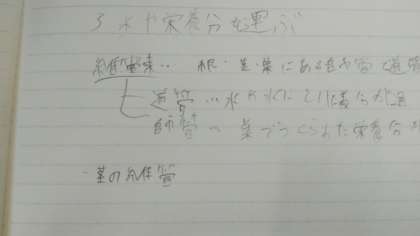 3 水や栄養分を運ぶ
維管束… 根・茎・葉にある師管と道管
道管…水や水にとけた養分が通
師管… 葉でつくられた栄養分が
・茎の維管